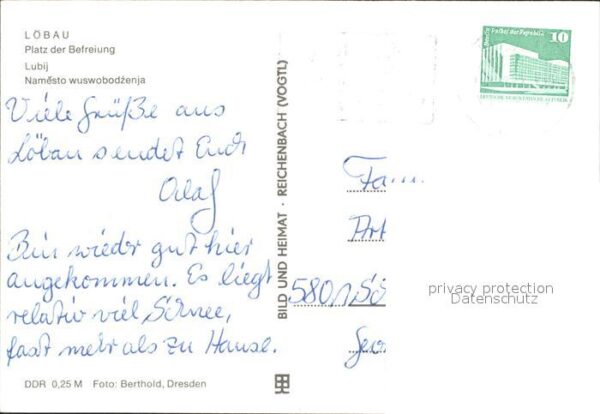 LÖBAU
Platz der Befreiung
Lubij
Naměsto wuswobodźenja
Viele Grüße aus
Löbau sendet Euch
Olaf
Bin wieder gut hier
angekommen. Es liegt
relativ viel Schnee,
fast mehr als zu Hause.
DDR 0,25 M Foto: Berthold, Dresden
BILD UND HEIMAT · REICHENBACH (VOGTL)
10
Berlin Palast der Republik
DEUTSCHE DEMOKRATISCHE REPUBLIK
Fa....
Art
5801
privacy protection
Datenschutz